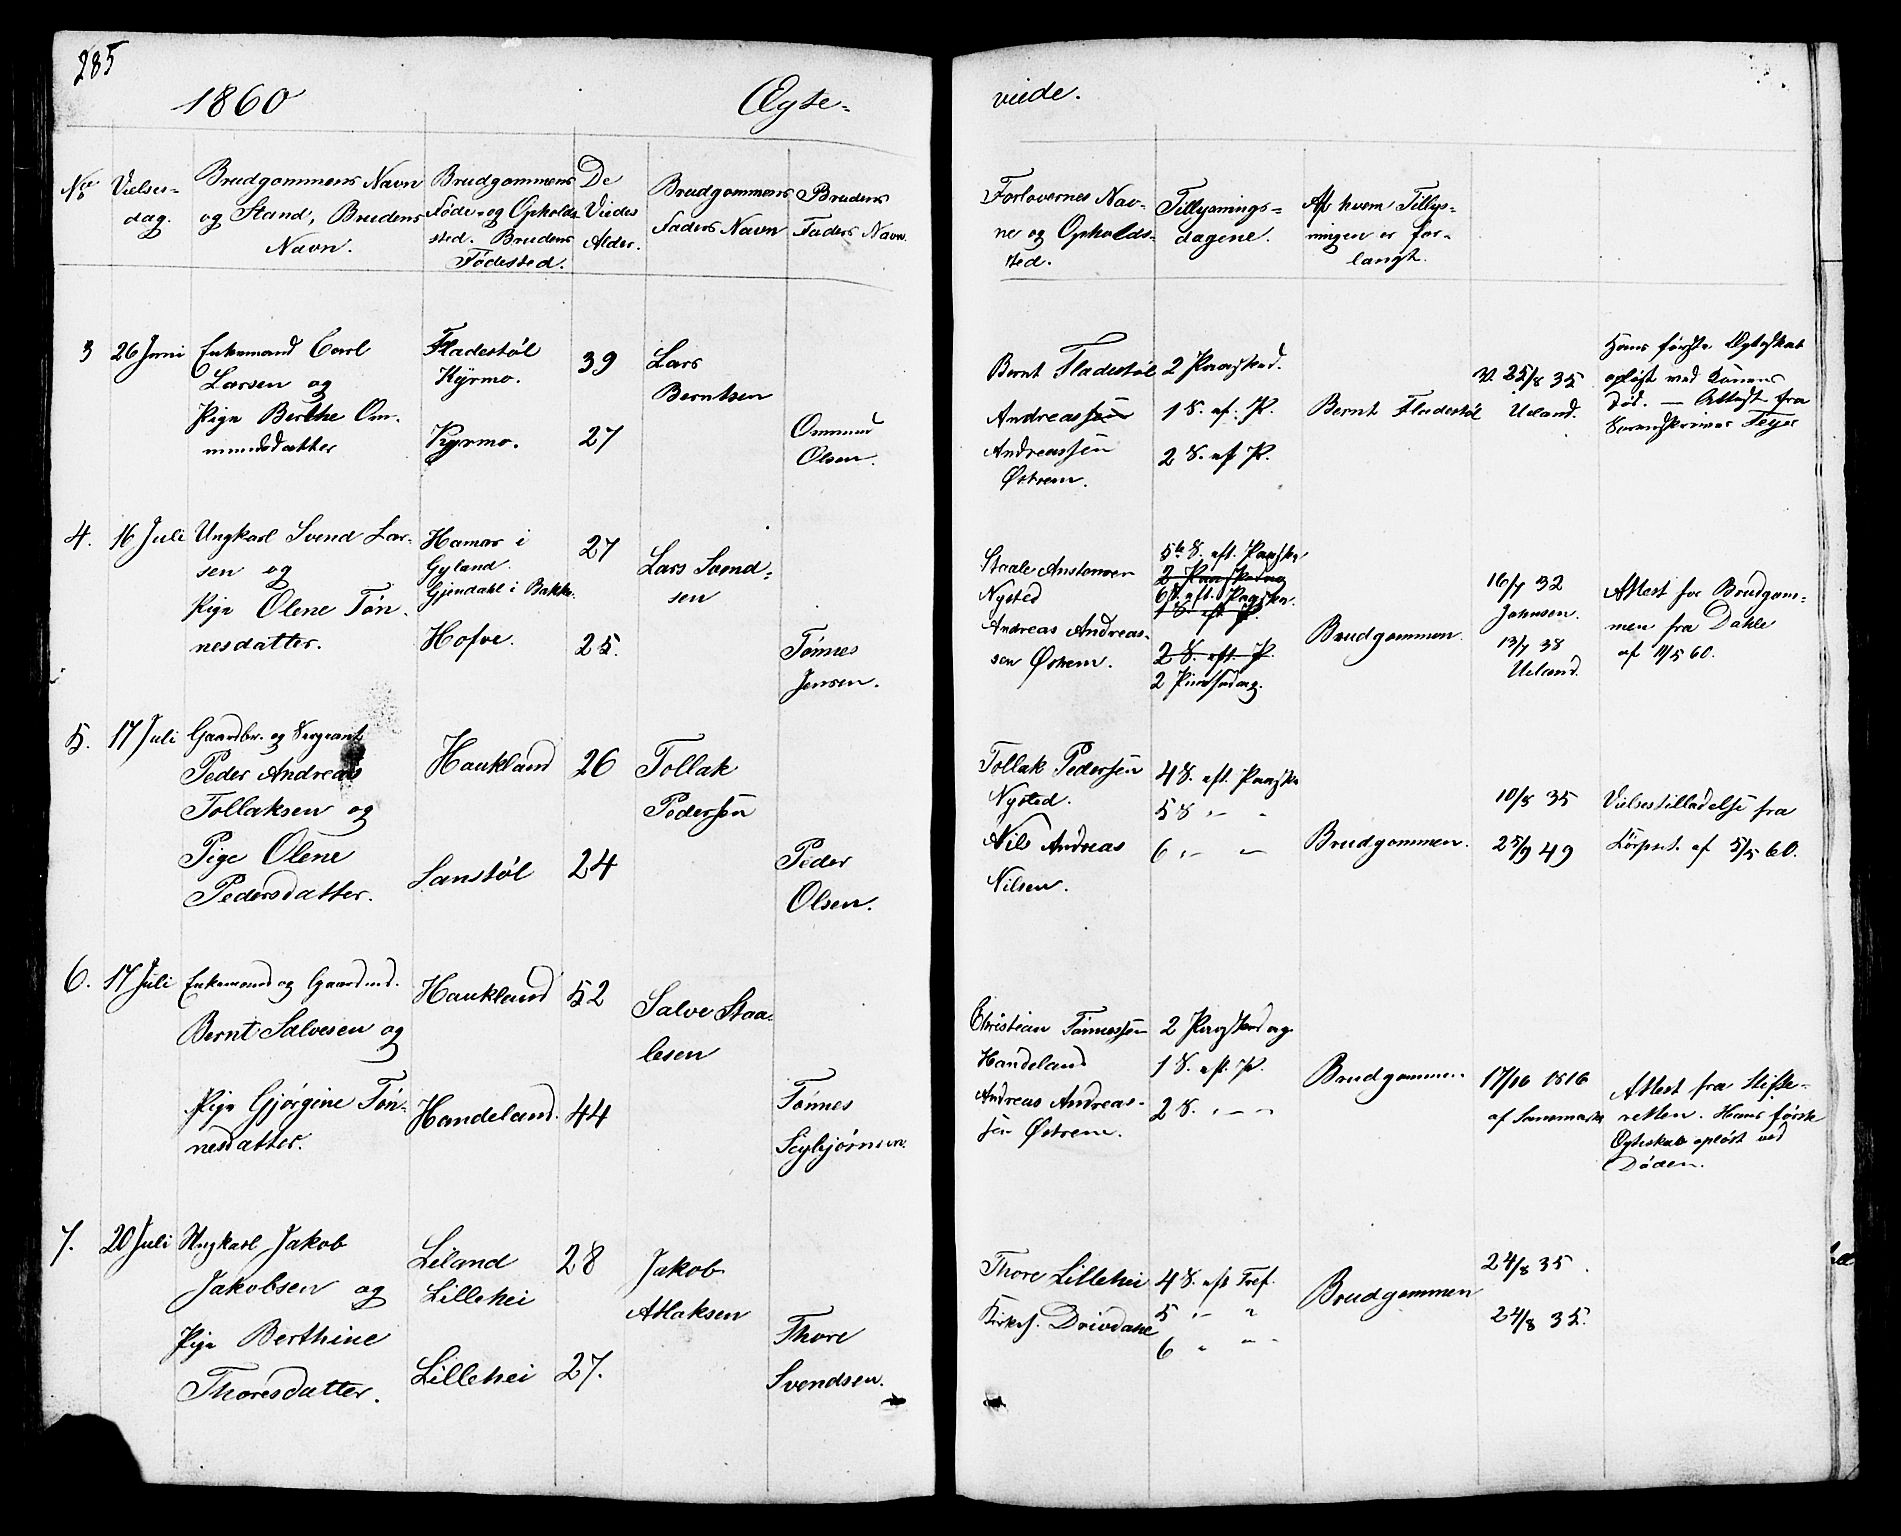 285
1860
Ægte-
viede.
No
Vielses-
dag.
Brudgommens Navn
og Stand, Brudens
Navn.
Brudgommens
Føde- og Opholds
sted. Brudens
Fødested.
De
Viedes
Alder.
Brudgommens
Faders Navn
Brudens
Faders Navn.
Forlovernes Nav-
ne og Opholds-
sted.
Tillysnings-
dagene.
Af hvem Tillys-
ningen er for-
langt.
3
26 Juni
Enkemand Carl
Larsen og
Pige Berthe Om-
mundsdatter
Fladestøl
Kyrmo.
Kyrmo.
39
27
Lars
Berntsen
Ommund
Olsen.
Bernt Fladestøl
Andreassen
Andreassen
Østrem.
2 Paasked.
1 S. ef. P.
2 S. ef P.
Bernt Fladestøl
V. 25/8 35
Ueland.
Hans første Ægteskab
opløst ved Konens
Død. — Attest fra
Sorenskriver Feyer
4.
16 Juli
Ungkarl Svend Lar-
sen og
Pige Olene Tøn-
nesdatter.
Hamar i
Gyland
Gjendahl i Bakke.
Hofve.
27
25.
Lars Svend-
sen
Tønnes
Jensen.
Staale Anstensen
Nysted
Andreas Andreas-
sen Østrem.
5te S. eft. Paaske
2 Paaskedag
6 S. eft. Paaske.
1 S. eft P.
2 S. eft. P.
2 Pinsedag.
Brudgommen.
16/7 32
Johnsen.
13/7 38
Ueland.
Attest for Brudgom-
men fra Dahle
af 11/5 60.
5.
17 Juli
Gaardbr. og Sergeant
Peder Andreas
Tollaksen og
Pige Olene
Pedersdatter.
Haukland
Sanstøl
26
24
Tollak
Pedersen
Peder
Olsen.
Tollak Pedersen
Nysted.
Nils Andreas
Nilsen.
4 S. eft. Paaske
5 S. „— „
6 „— „—
Brudgommen.
10/8 35
25/9 49
Vielsestilladelse fra
Korpset af 5/5 60.
6.
17 Juli
Enkemand og Gaardmd.
Bernt Salvesen og
Pige Gjørgine Tøn-
nesdatter.
Haukland
Handeland.
52
44
Salve Staa-
lesen
Tønnes
Seybjørnsen.
Christian Tønnessen
Handeland
Andreas Andreas-
sen Østrem.
2 Paaskedag
1 S. eft. P.
2 S. „— „
Brudgommen.
17/10 1816
af Sannemarke
Attest fra Skifte-
retten. Hans første
Ægteskab opløst ved
Døden.
7.
20 Juli
Ungkarl Jakob
Jakobsen og
Pige Berthine
Thoresdatter.
Liland
Lillehei
Lillehei
28
27.
Jakob
Atlaksen
Thore
Svendsen.
Thore Lillehei
Kirkes. Drivdahl
4 S. eft Tref.
5 „— „
6 „ „—
Brudgommen
24/8 35.
24/8 35.